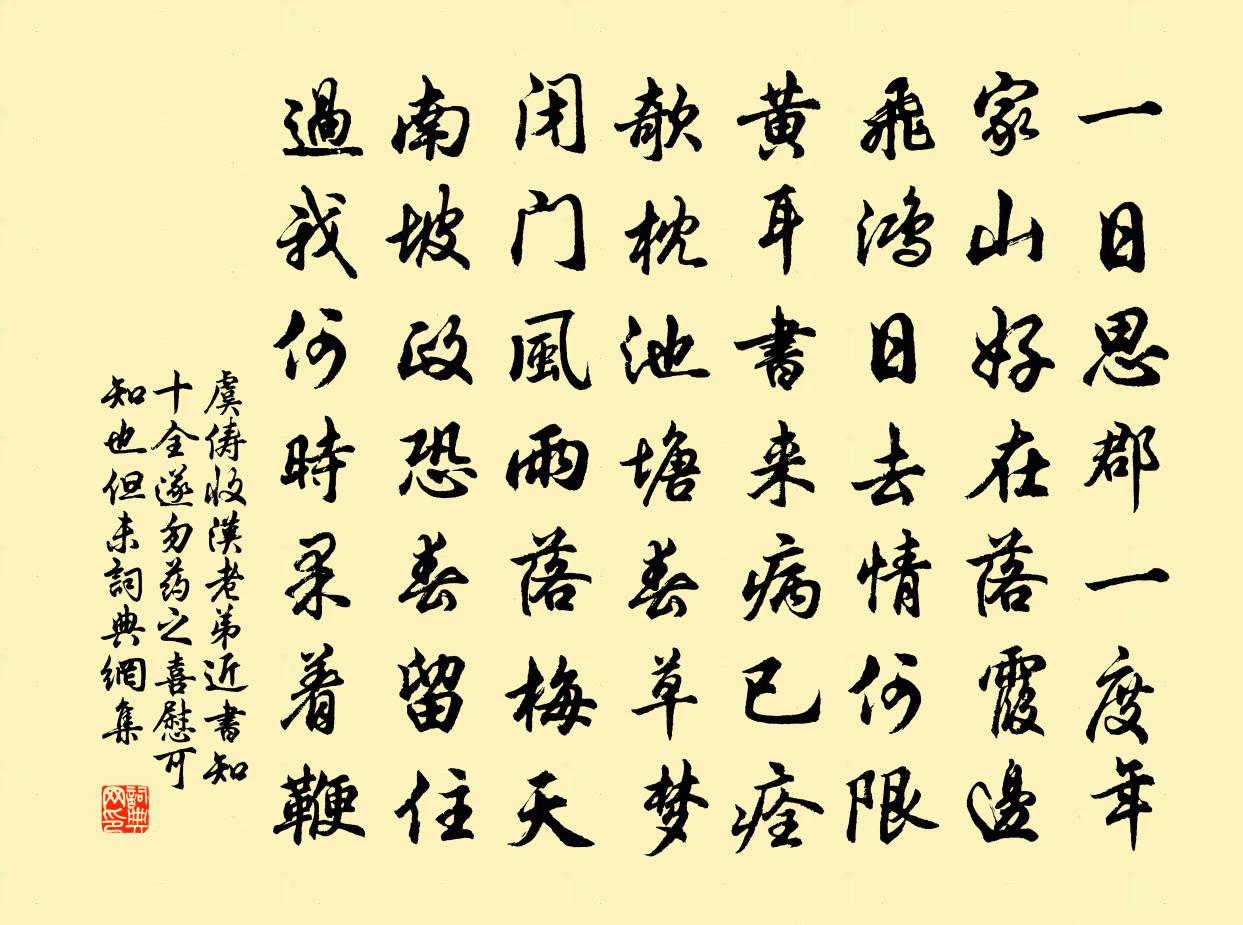 一日思郡一度年
家山好在落霞邊
飛鴻日去情何限
黄耳書来病已痊
欹枕池塘春草梦
闭门風雨落梅天
南坡政恐春留住
過我何時果着鞭
虞俦收漢老弟近書知
十全遂勿药之喜慰可
知也但未詞典網集
詞典网